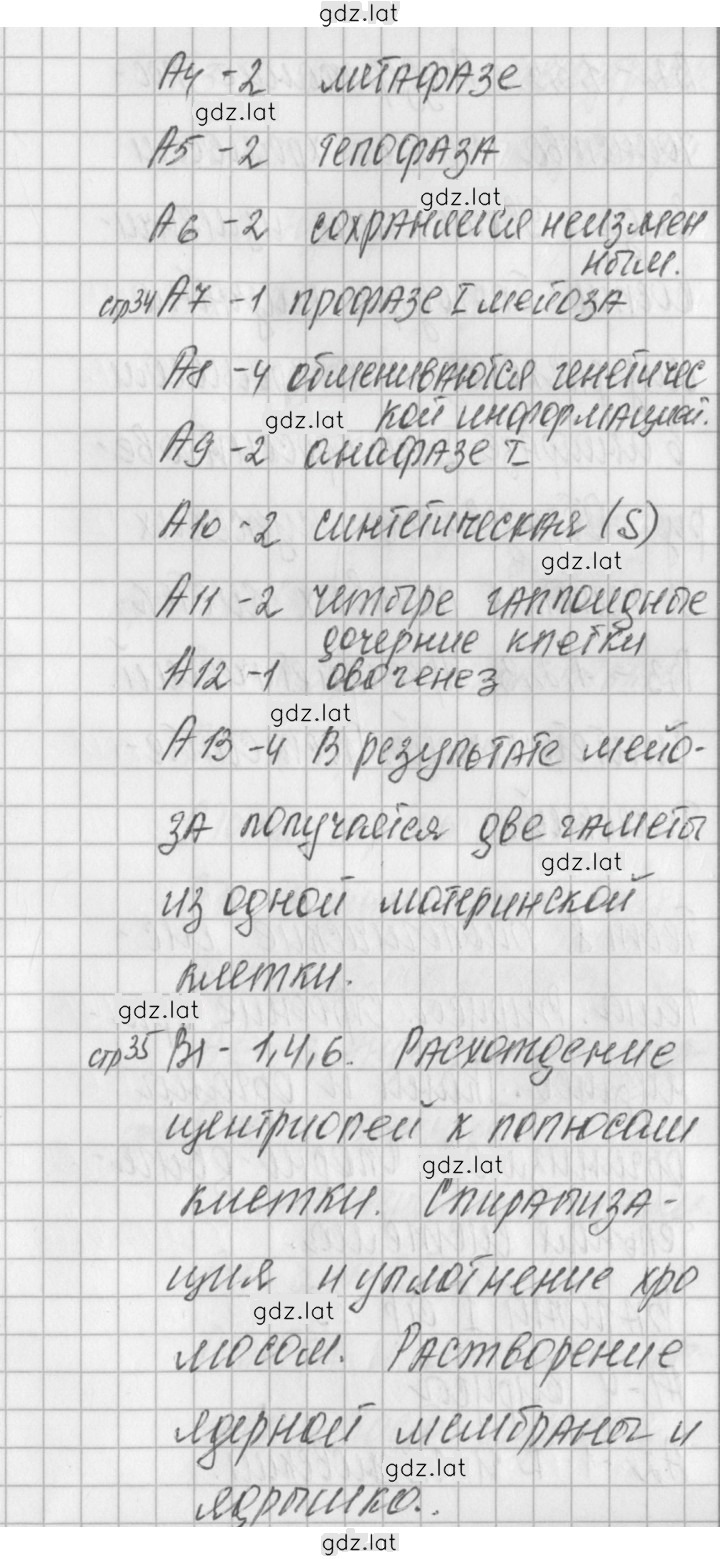 gdz.lat
А4 - 2 метафазе
gdz.lat
А5 - 2 телофаза
gdz.lat
А6 - 2 сохраняется неизмен
ным.
стр34 А7 - 1 профазе I мейоза
А8 - 4 обмениваются генетичес
gdz.lat кой информацией.
А9 - 2 анафазе I
А10 - 2 синтетическая (S)
gdz.lat
А11 - 2 четыре гаплоидные
дочерние клетки
А12 - 1 овогенез
gdz.lat
А13 - 4 В результате мейо-
за получается две гаметы
gdz.lat
из одной материнской
клетки.
gdz.lat
стр35 В1 - 1,4,6. Расхождение
центриолей к полюсам
gdz.lat
клетки. Спирализа-
ция и уплотнение хро
gdz.lat
мосом. Растворение
ядерной мембраны и
gdz.lat
ядрышко..
gdz.lat